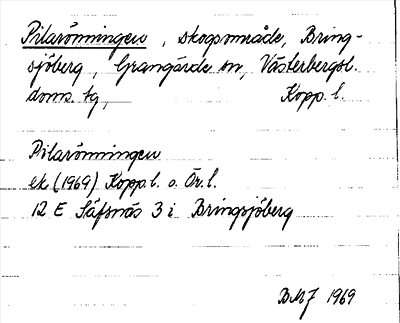 Pilarönningen, skogsområde, Bring-
sjöberg, Grangärde sn, Västerbergsl.
doms. tg, Kopp. l.
Pilarönningen
ek (1969) Kopp. l. o. Ör. l.
12 E Säfsnäs 3 i Bringsjöberg
BMJ 1969